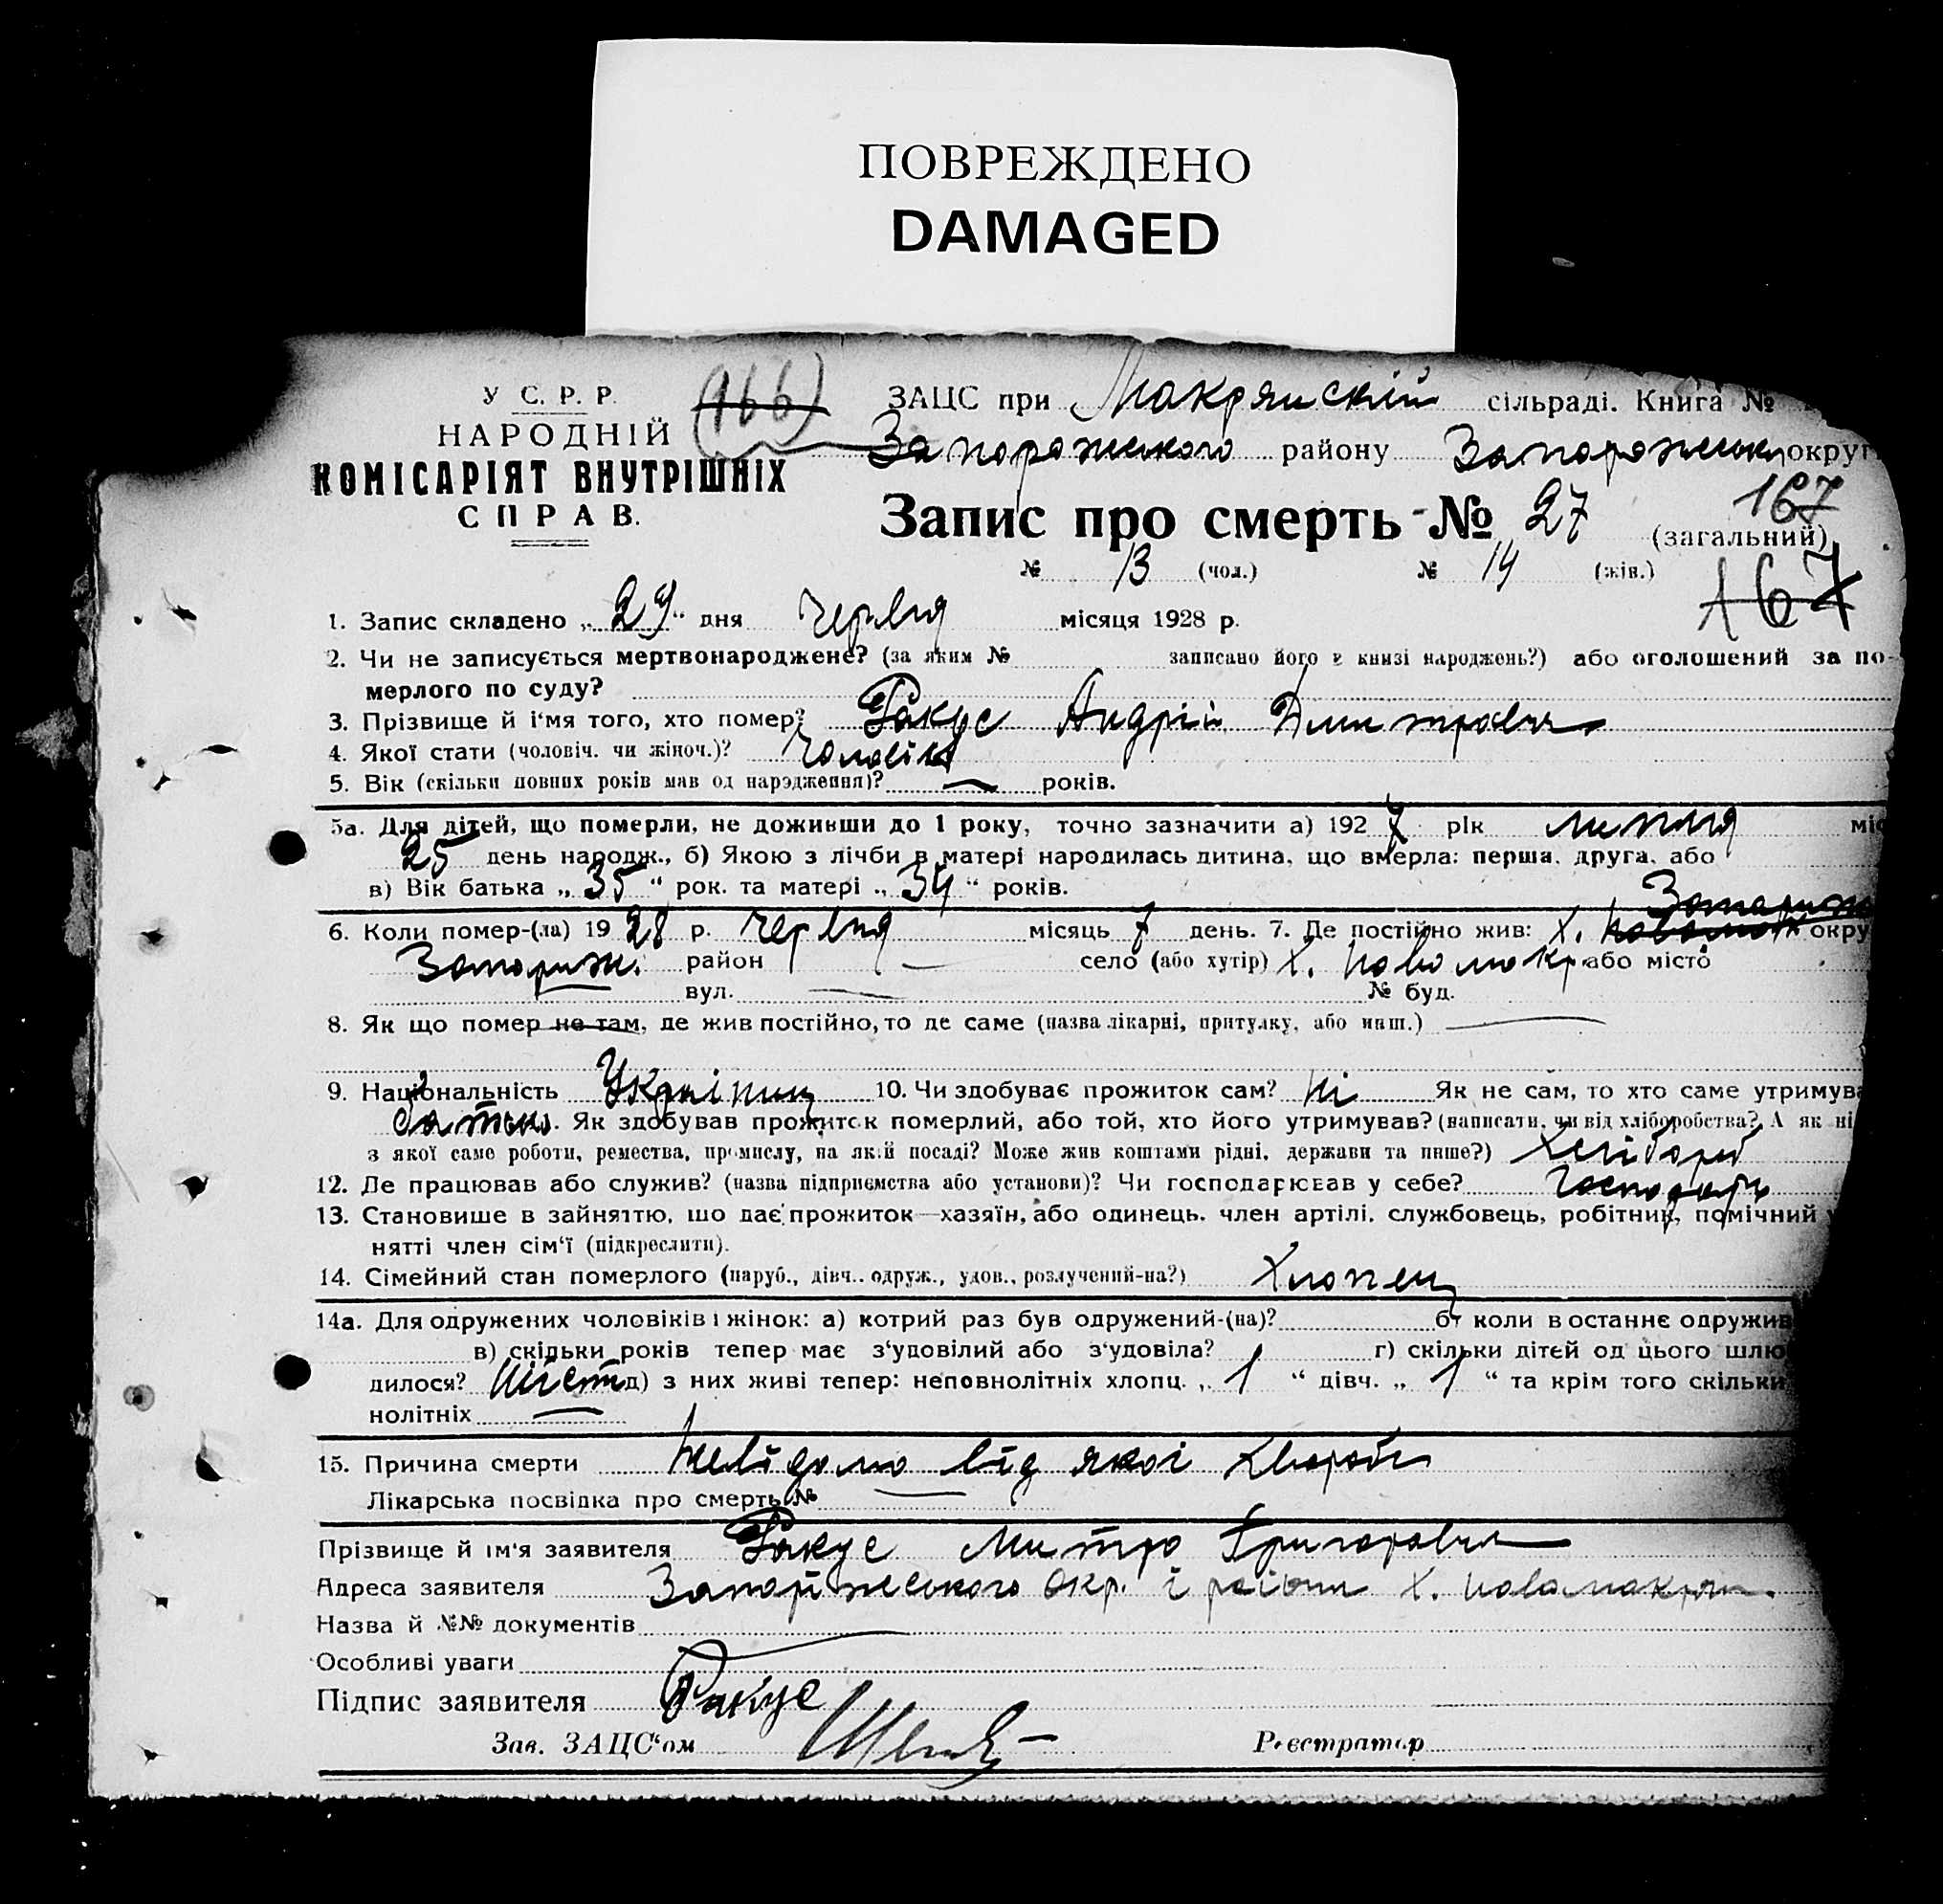 ПОВРЕЖДЕНО
DAMAGED
У С. Р. Р.
НАРОДНІЙ
КОМІСАРІЯТ ВНУТРІШНІХ
СПРАВ.
(166)
ЗАЦС при Макрянскій сільраді. Книга №
Запорожського району Запорожськ округ
Запис про смерть № 27 (загальний)
167
№ 13 (чол.) № 14 (жін.)
167
1. Запис складено „ 29 “ дня червня місяця 1928 р.
2. Чи не записується мертвонароджене? (за яким № записано його в книзі народжень?) або оголошений за по-
мерлого по суду?
3. Прізвище й і‘мя того, хто помер? Ракус Андрій Дмитрович
4. Якої стати (чоловіч. чи жіноч.)? чоловік
5. Вік (скільки повних років мав од народження)? — років.
5а. Для дітей, що померли, не доживши до 1 року, точно зазначити а) 1927 рік липня міс
25 день народж., б) Якою з лічби в матері народилась дитина, що вмерла: перша, друга, або
в) Вік батька „ 35 “ рок. та матері „ 34 “ років.
6. Коли помер-(ла) 1928 р. червня місяць 7 день. 7. Де постійно жив: х. округ
Запориж. район — село (або хутір) х. Новомокр. або місто
вул. — № буд.
8. Як що помер не там, де жив постійно, то де саме (назва лікарні, притулку, або инш.) —
9. Національність Українец 10. Чи здобуває прожиток сам? Ні Як не сам, то хто саме утримува
батько. Як здобував прожиток померлий, або той, хто його утримував? (написати, чи від хліборобства? А як ні
з якої саме роботи, ремества, промислу, на якій посаді? Може жив коштами рідні, держави та инше?) Хлібороб
12. Де працював або служив? (назва підприємства або установи)? Чи господарював у себе? Господарь
13. Становише в зайняттю, що дає прожиток—хазяїн, або одинець, член артілі, службовець, робітник, помічний у
нятті член сім‘ї (підкреслити).
14. Сімейний стан померлого (паруб., дівч.. одруж., удов., розлучений-на?) Хлопец
14а. Для одружених чоловіків і жінок: а) котрий раз був одружений-(на)? б) коли в останнє одружив
в) скільки років тепер має з‘удовілий або з‘удовіла? г) скільки дітей од цього шлю
дилося? шість д) з них живі тепер: неповнолітніх хлопц. „ 1 “ дівч. „ 1 “ та крім того скільки
нолітніх —
15. Причина смерти невідомо від якої хвороби
Лікарська посвідка про смерть № —
Прізвище й ім‘я заявителя Ракус Митро Григорович
Адреса заявителя Запоріжського окр. і району х. Новамокрян.
Назва й №№ документів —
Особливі уваги
Підпис заявителя Ракус
Зав. ЗАЦС‘ом Реєстратор